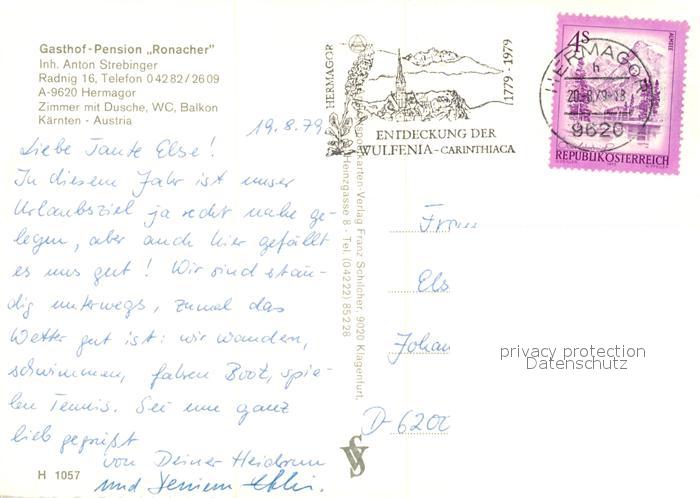 Gasthof-Pension „Ronacher"
Inh. Anton Strebinger
Radnig 16, Telefon 04282/2609
A-9620 Hermagor
Zimmer mit Dusche, WC, Balkon
Kärnten - Austria
19.8.79
Liebe Tante Else!
In diesem Jahr ist unser
Urlaubsziel ja recht nahe ge-
legen, aber auch hier gefällt
es uns gut! Wir sind stän-
dig unterwegs, zumal das
Wetter gut ist: wir wandern,
schwimmen, fahren Boot, spie-
len Tennis. Sei nun ganz
lieb gegrüßt
von Deiner Heidrun
und Deinem
H 1057
HERMAGOR
1779-1979
ENTDECKUNG DER
WULFENIA-CARINTHIACA
HERMAGOR
20.-8.79-18
h
9620
4S
ALMSEE
REPUBLIK ÖSTERREICH
karten-Verlag Franz Schilcher, 9020 Klagenfurt,
Heinzgasse 8 - Tel. (04222) 85228
Frau
Els
Johan
D-6200
privacy protection
Datenschutz